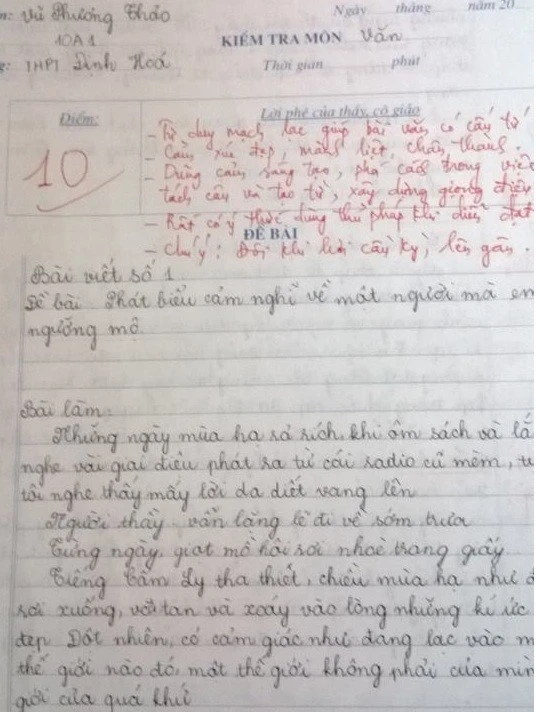 n: Vũ Phương Thảo
Ngày tháng năm 20
10A1
KIỂM TRA MÔN Văn
g: THPT Định Hoá
Thời gian phút
Điểm:
Lời phê của thầy, cô giáo
10
- Tư duy mạch lạc giúp bài văn có cấu tứ
- Cảm xúc đẹp, mãnh liệt, chân thành.
- Dùng câu sáng tạo, phá cách trong việc
tách câu và tạo từ, xây dựng giọng điệu
- Rất có ý thức dùng thủ pháp khi diễn đạt
ĐỀ BÀI
- Chú ý: Đôi khi hơi cầu kỳ, lên gân.
Bài viết số 1.
Đề bài. Phát biểu cảm nghĩ về một người mà em
ngưỡng mộ.
Bài làm:
Những ngày mùa hạ rả rích, khi ôm sách và lắ
nghe vài giai điệu phát ra từ cái radio cũ mèm, t
tôi nghe thấy mấy lời da diết vang lên
Người thầy vẫn lặng lẽ đi về sớm trưa
Từng ngày, giọt mồ hôi rơi nhoè trang giấy
Tiếng Cẩm Ly tha thiết, chiều mùa hạ như
rơi xuống, vỡ tan và xoáy vào lòng những kí ức
đẹp. Đột nhiên, có cảm giác như đang lạc vào m
thế giới nào đó, một thế giới không phải của mìn
giới của quá khứ